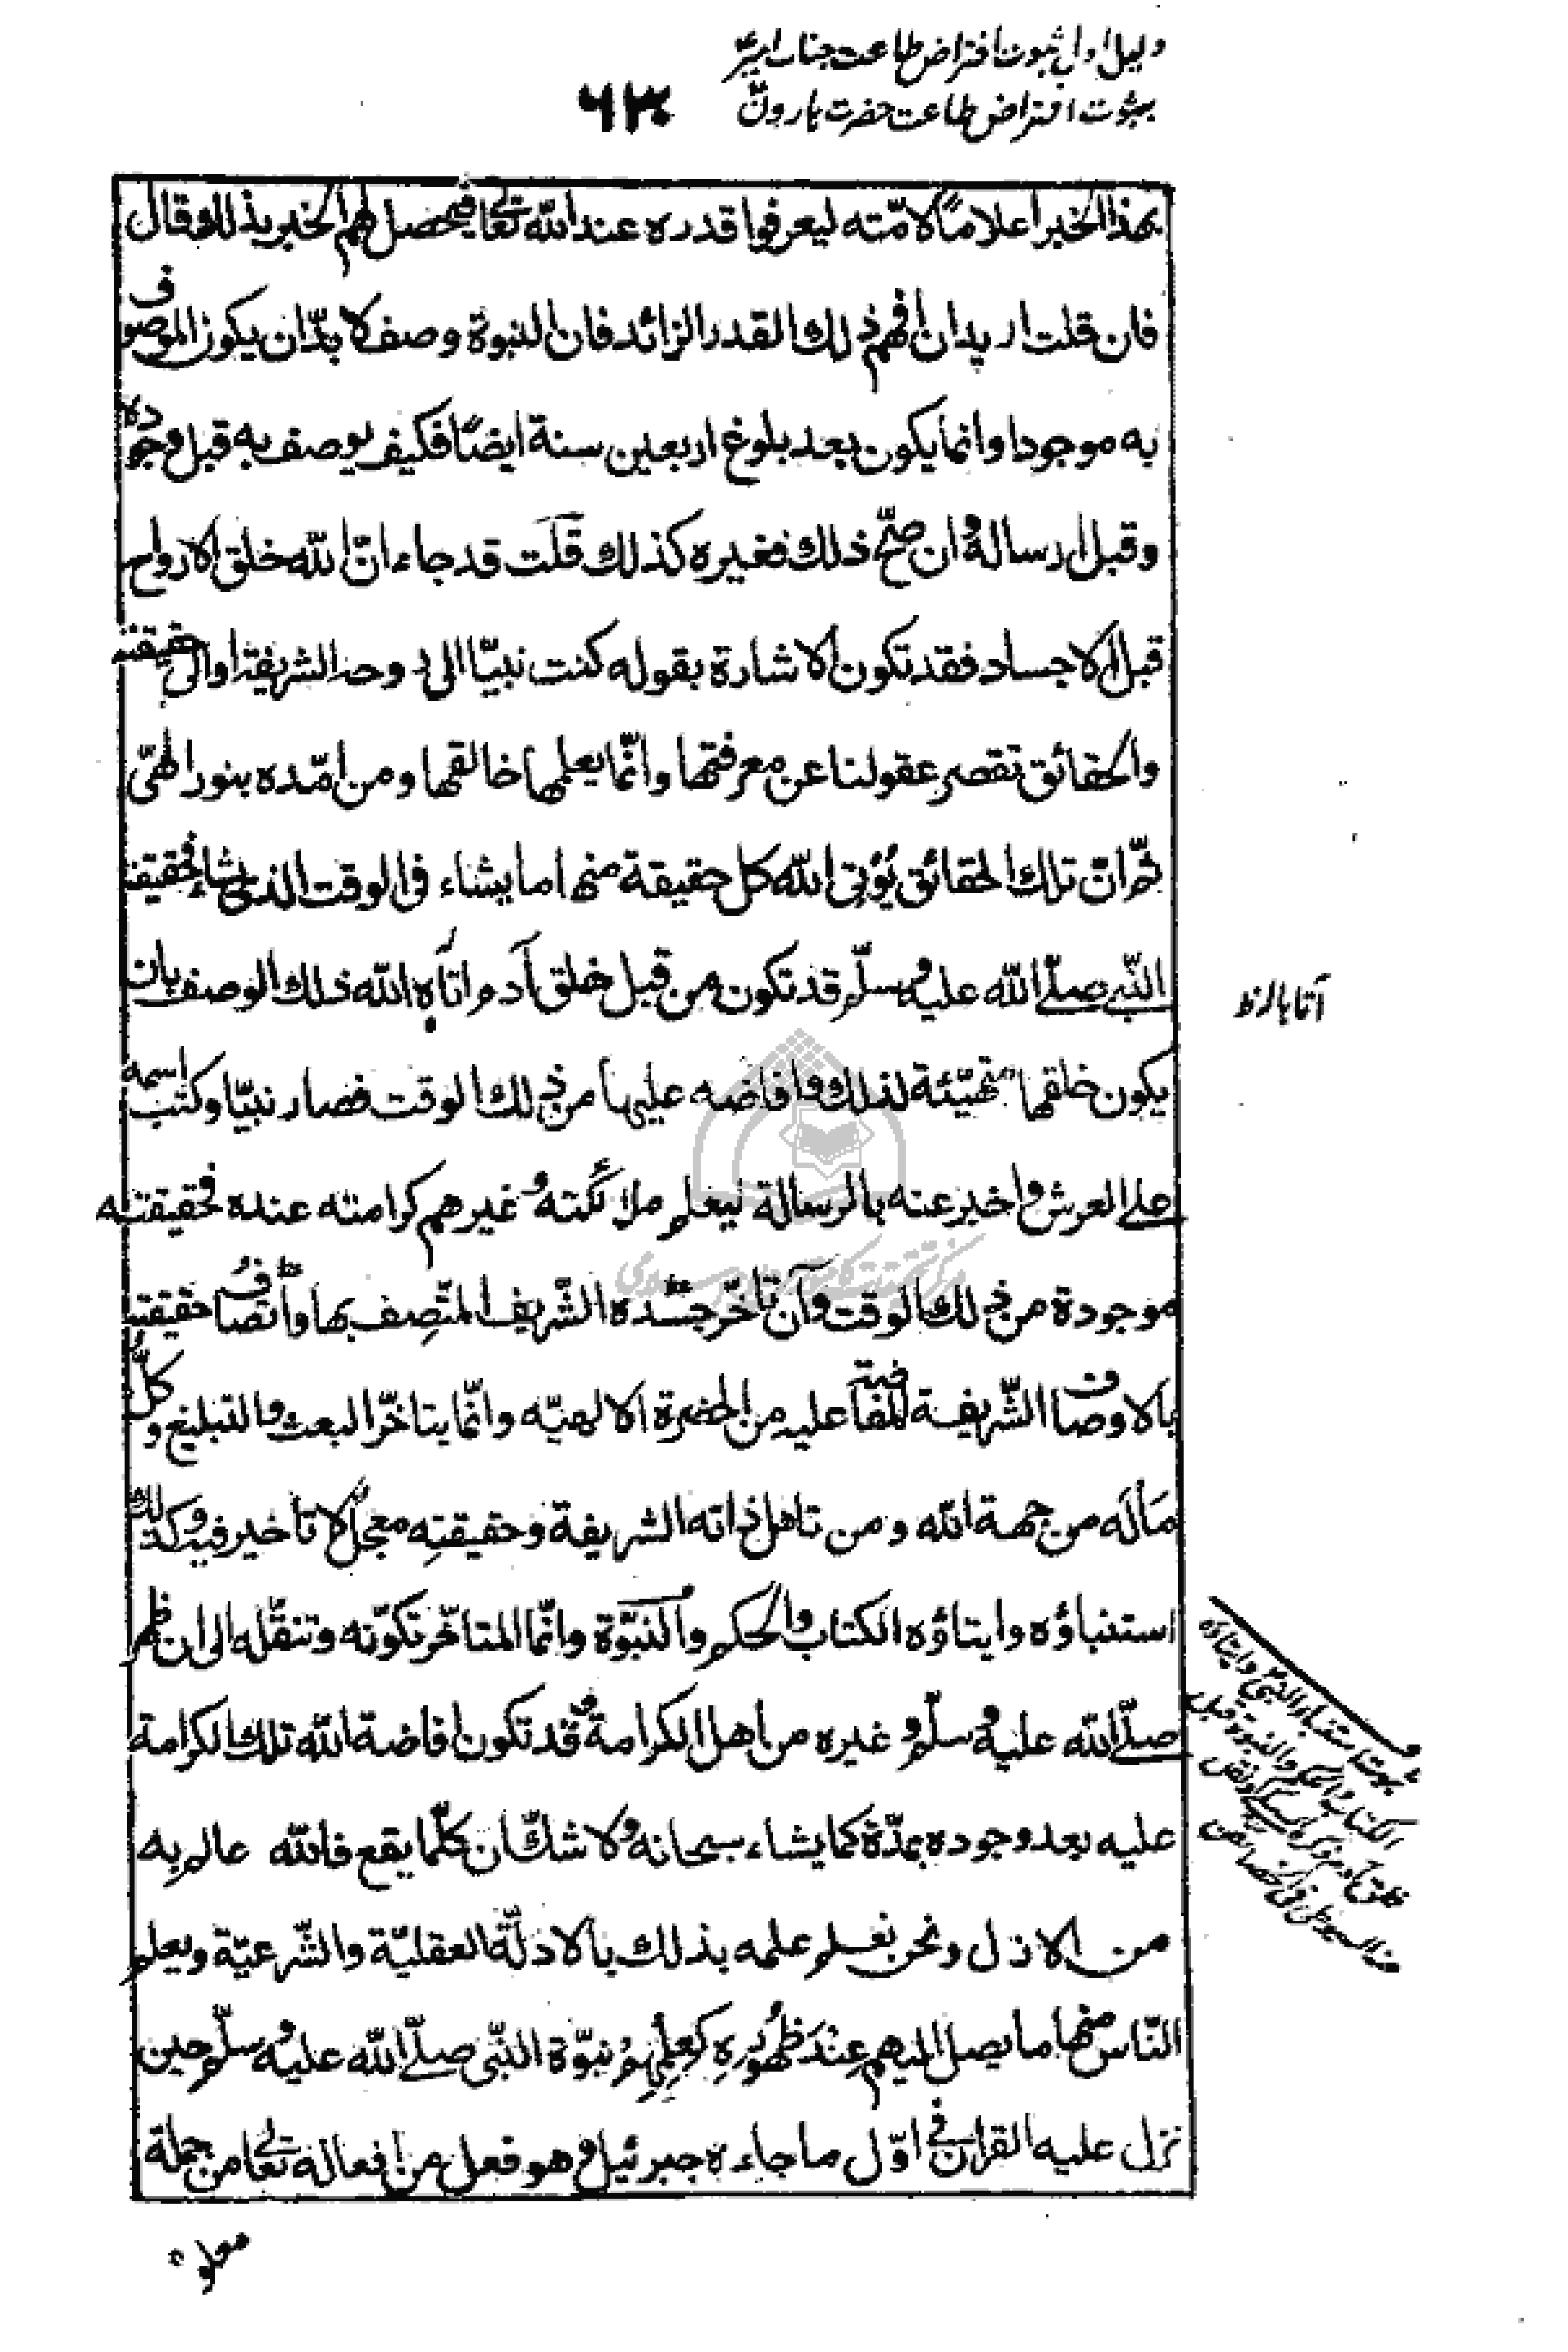 دلیل اول ثبوت افتراض طاعت جناب امیرؑ
بثبوت افتراض طاعت حضرت ہارونؑ
۶۳۰
بهذا الخبر اعلامًا لامّته ليعرفوا قدره عند الله تعالى فيحصل لهم الخير بذلك وقال
فان قلت اريد ان افهم ذلك القدر الزائد فان النبوة وصف لا بدّ ان يكون الموصوف
به موجودا وانما يكون بعد بلوغ اربعين سنة ايضًا فكيف يوصف به قبل وجوده
وقبل ارساله وان صحّ ذلك فغيره كذلك قلت قد جاء انّ الله خلق الارواح
قبل الاجساد فقد تكون الاشارة بقوله كنت نبيّا الى روحه الشريفة او الى حقيقته
والحقائق تقصر عقولنا عن معرفتها وانّما يعلمها خالقها ومن امّده بنور الٰهىّ
ثمّ انّ تلك الحقائق يُؤتى الله كل حقيقة منها ما يشاء فى الوقت الذى يشاء فحقيقة
النّبى صلّى الله عليه وسلّم قد تكون من قبل خلق آدم اتاه الله ذلك الوصف بان
يكون خلقها متهيّئة لذلك وافاضه عليها من ذلك الوقت فصار نبيّا وكتب اسمه
على العرش واخبر عنه بالرسالة ليعلم ملائكته وغيرهم كرامته عنده فحقيقته
موجودة من ذلك الوقت وآن تأخّر جسده الشّريف المتّصف بها واتّصاف حقيقته
بالاوصاف الشّريفة المفاضة عليه من الحضرة الالهيّه وانّما يتاخّر البعث والتبليغ وكلّ
مَا لَه من جهة الله ومن تاهل ذاته الشريفة وحقيقتِه معجلٌ لا تأخير فيه وكذلك
استنباؤه وايتاؤه الكتاب والحكم والنبّوة وانّما المتاخّر تكوّنه وتنقّله الى ان ظهر
صلّى الله عليه وسلّم وغيره من اهل الكرامة وقد تكون افاضة الله تلك الكرامة
عليه بعد وجوده بمدّة كما يشاء سبحانه ولا شكّ ان كلّما يقع فالله عالم به
من الازل ونحن نعلم علمه بذلك بالادلّة العقليّة والشّرعيّة ويعلم
النّاس منها ما يصل اليهم عِندَ ظُهُورِهِ كعِلمِهِم نبوّة النّبى صلّى الله عليه وسلّم حين
نزل عليه القران فى اوّل ما جاءه جبرئيل وهو فعل من افعاله تعالى من جملة
معلو
آتاها لزط
ثبوت استنباء النبىؐ وايتاؤه
الكتاب والحكم والنبوة قبل
خلق آدم